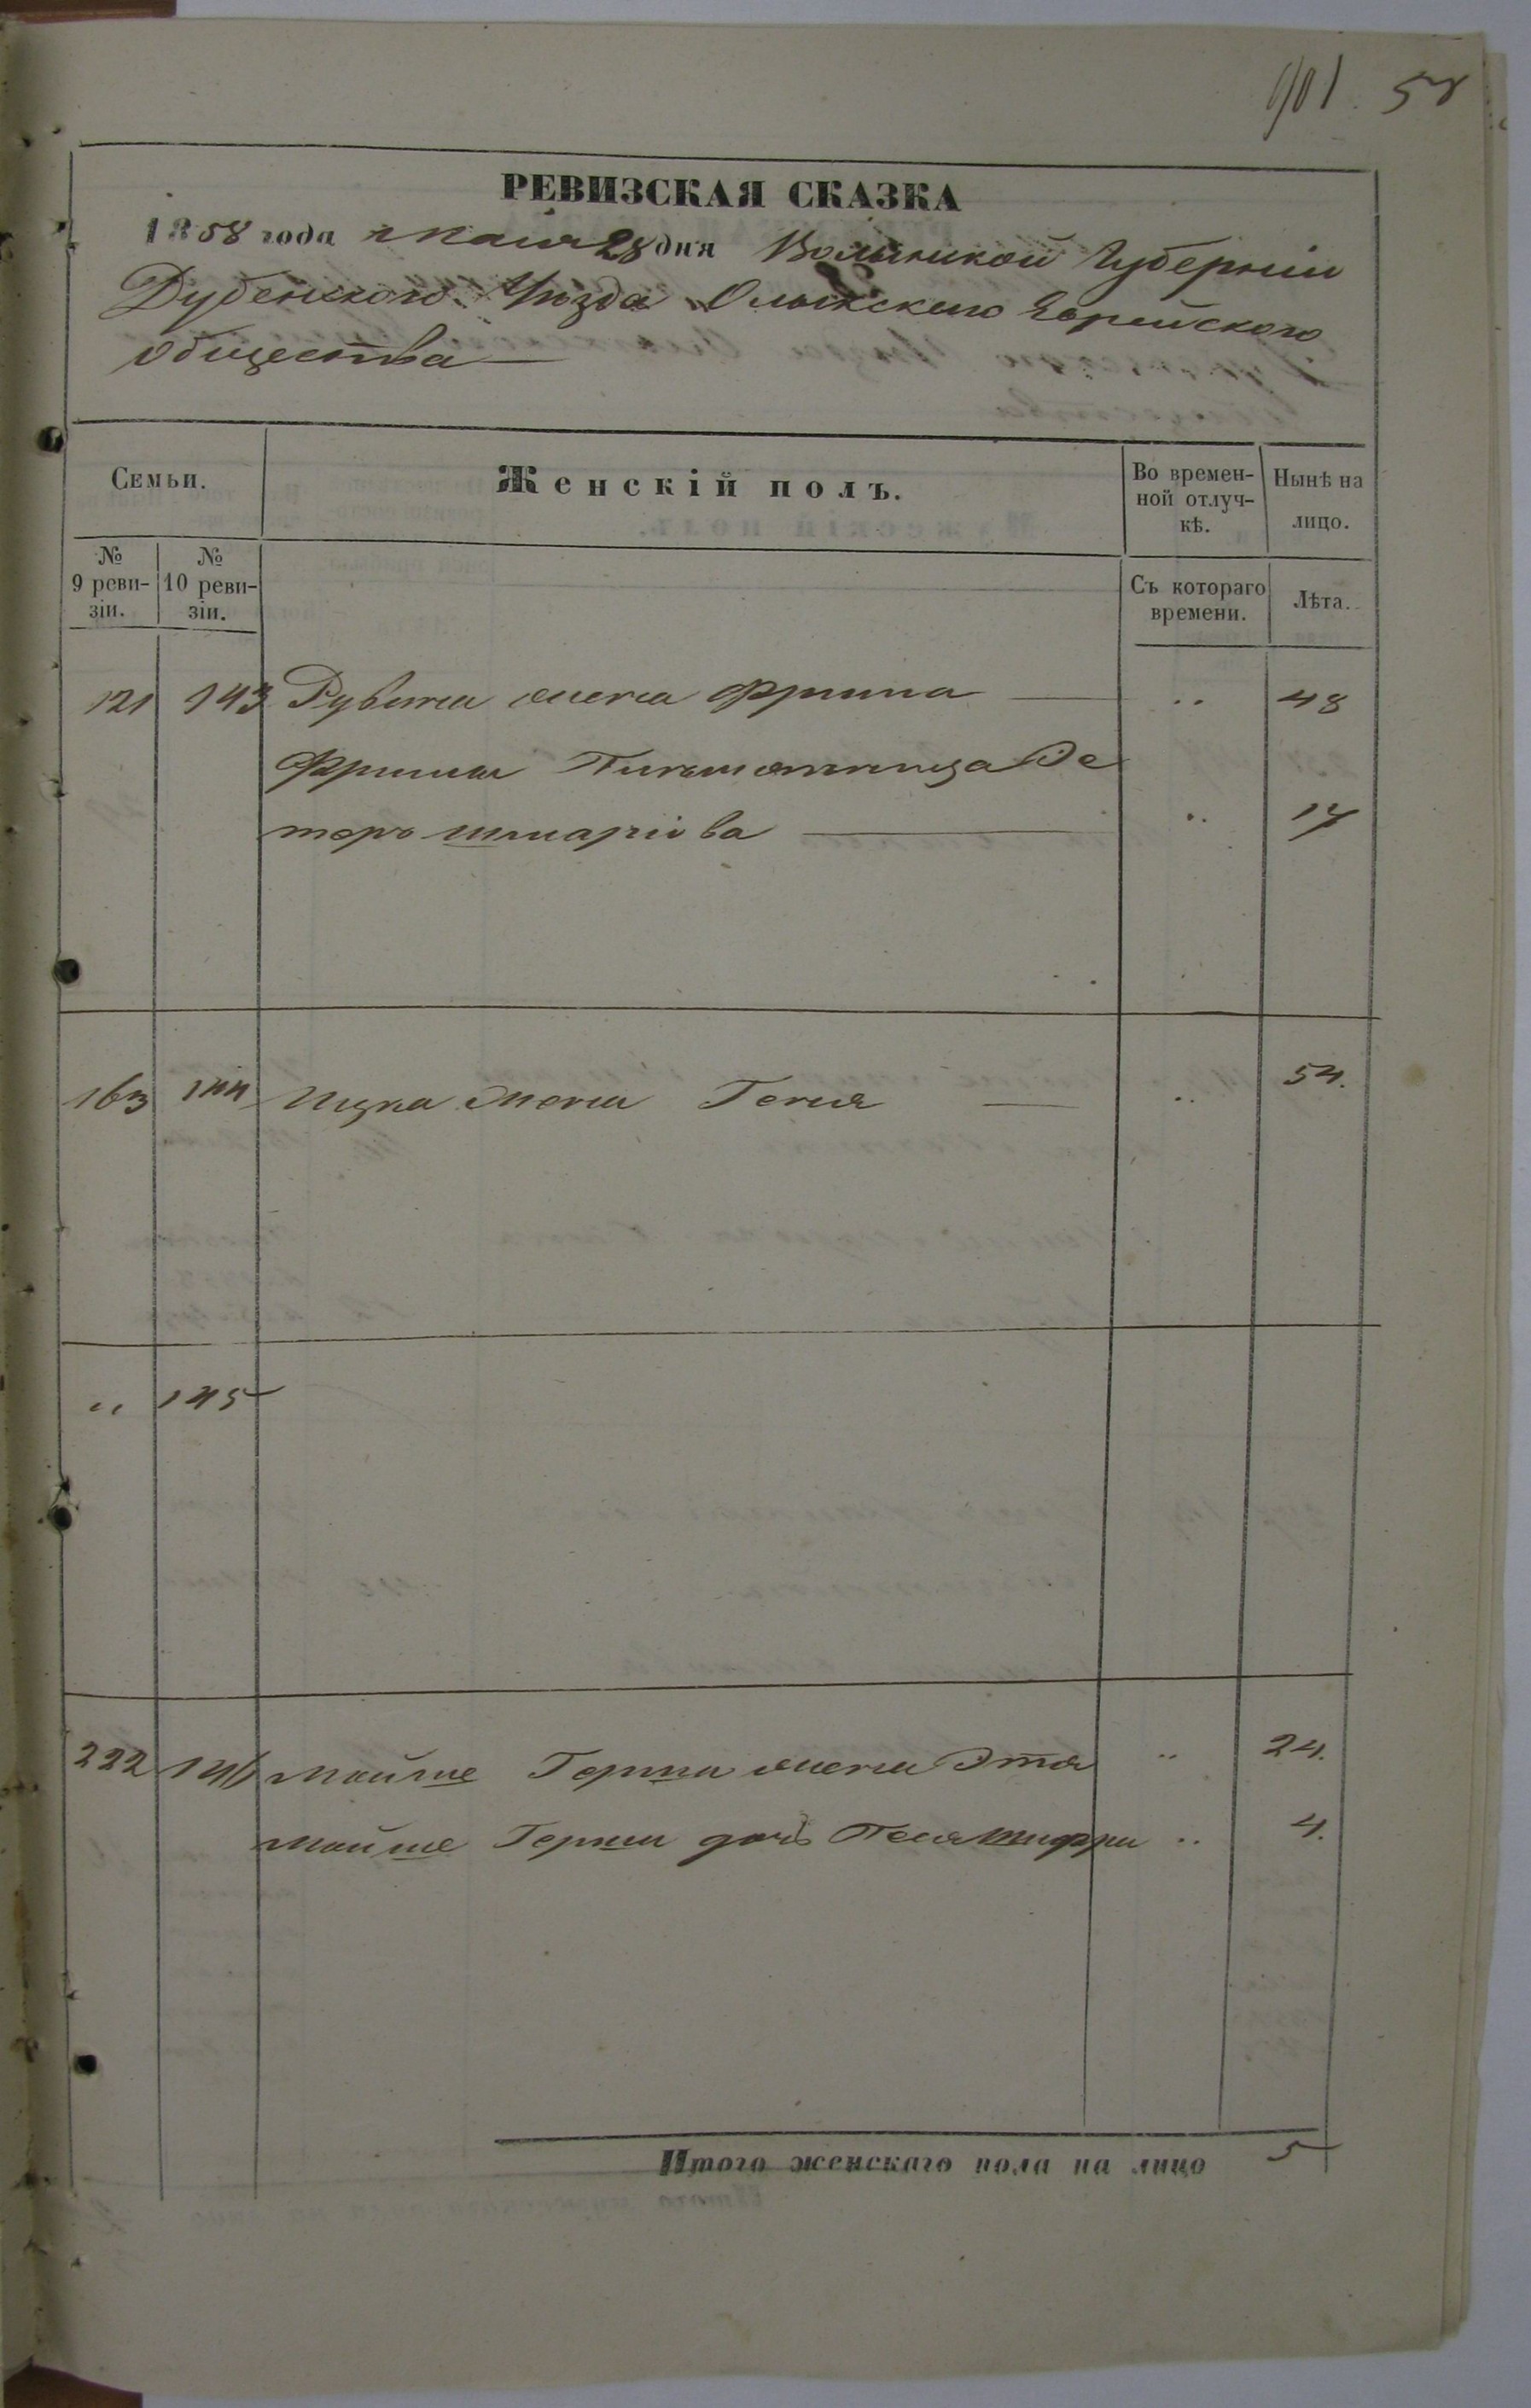 901. 58
РЕВИЗСКАЯ СКАЗКА
1858 года Мая 28 дня Волынской Губерніи
Дубенского Уѣзда Олыкского Еврейского
общества
Семьи.
Женскій полъ.
Во времен-
ной отлуч-
кѣ.
Нынѣ на
лицо.
№
9 реви-
зіи.
№
10 реви-
зіи.
Съ котораго
времени.
Лѣта.
121 143 Рувина жена Фрима „ 48
Фримы
„ 17
163 144 Ицка жена Геня „ 54.
„ 145
222 146 Мойше Герша жена Этя „ 24.
Мойше Герша дочь Песя Шифра „ 4.
Итого женскаго пола на лицо 5